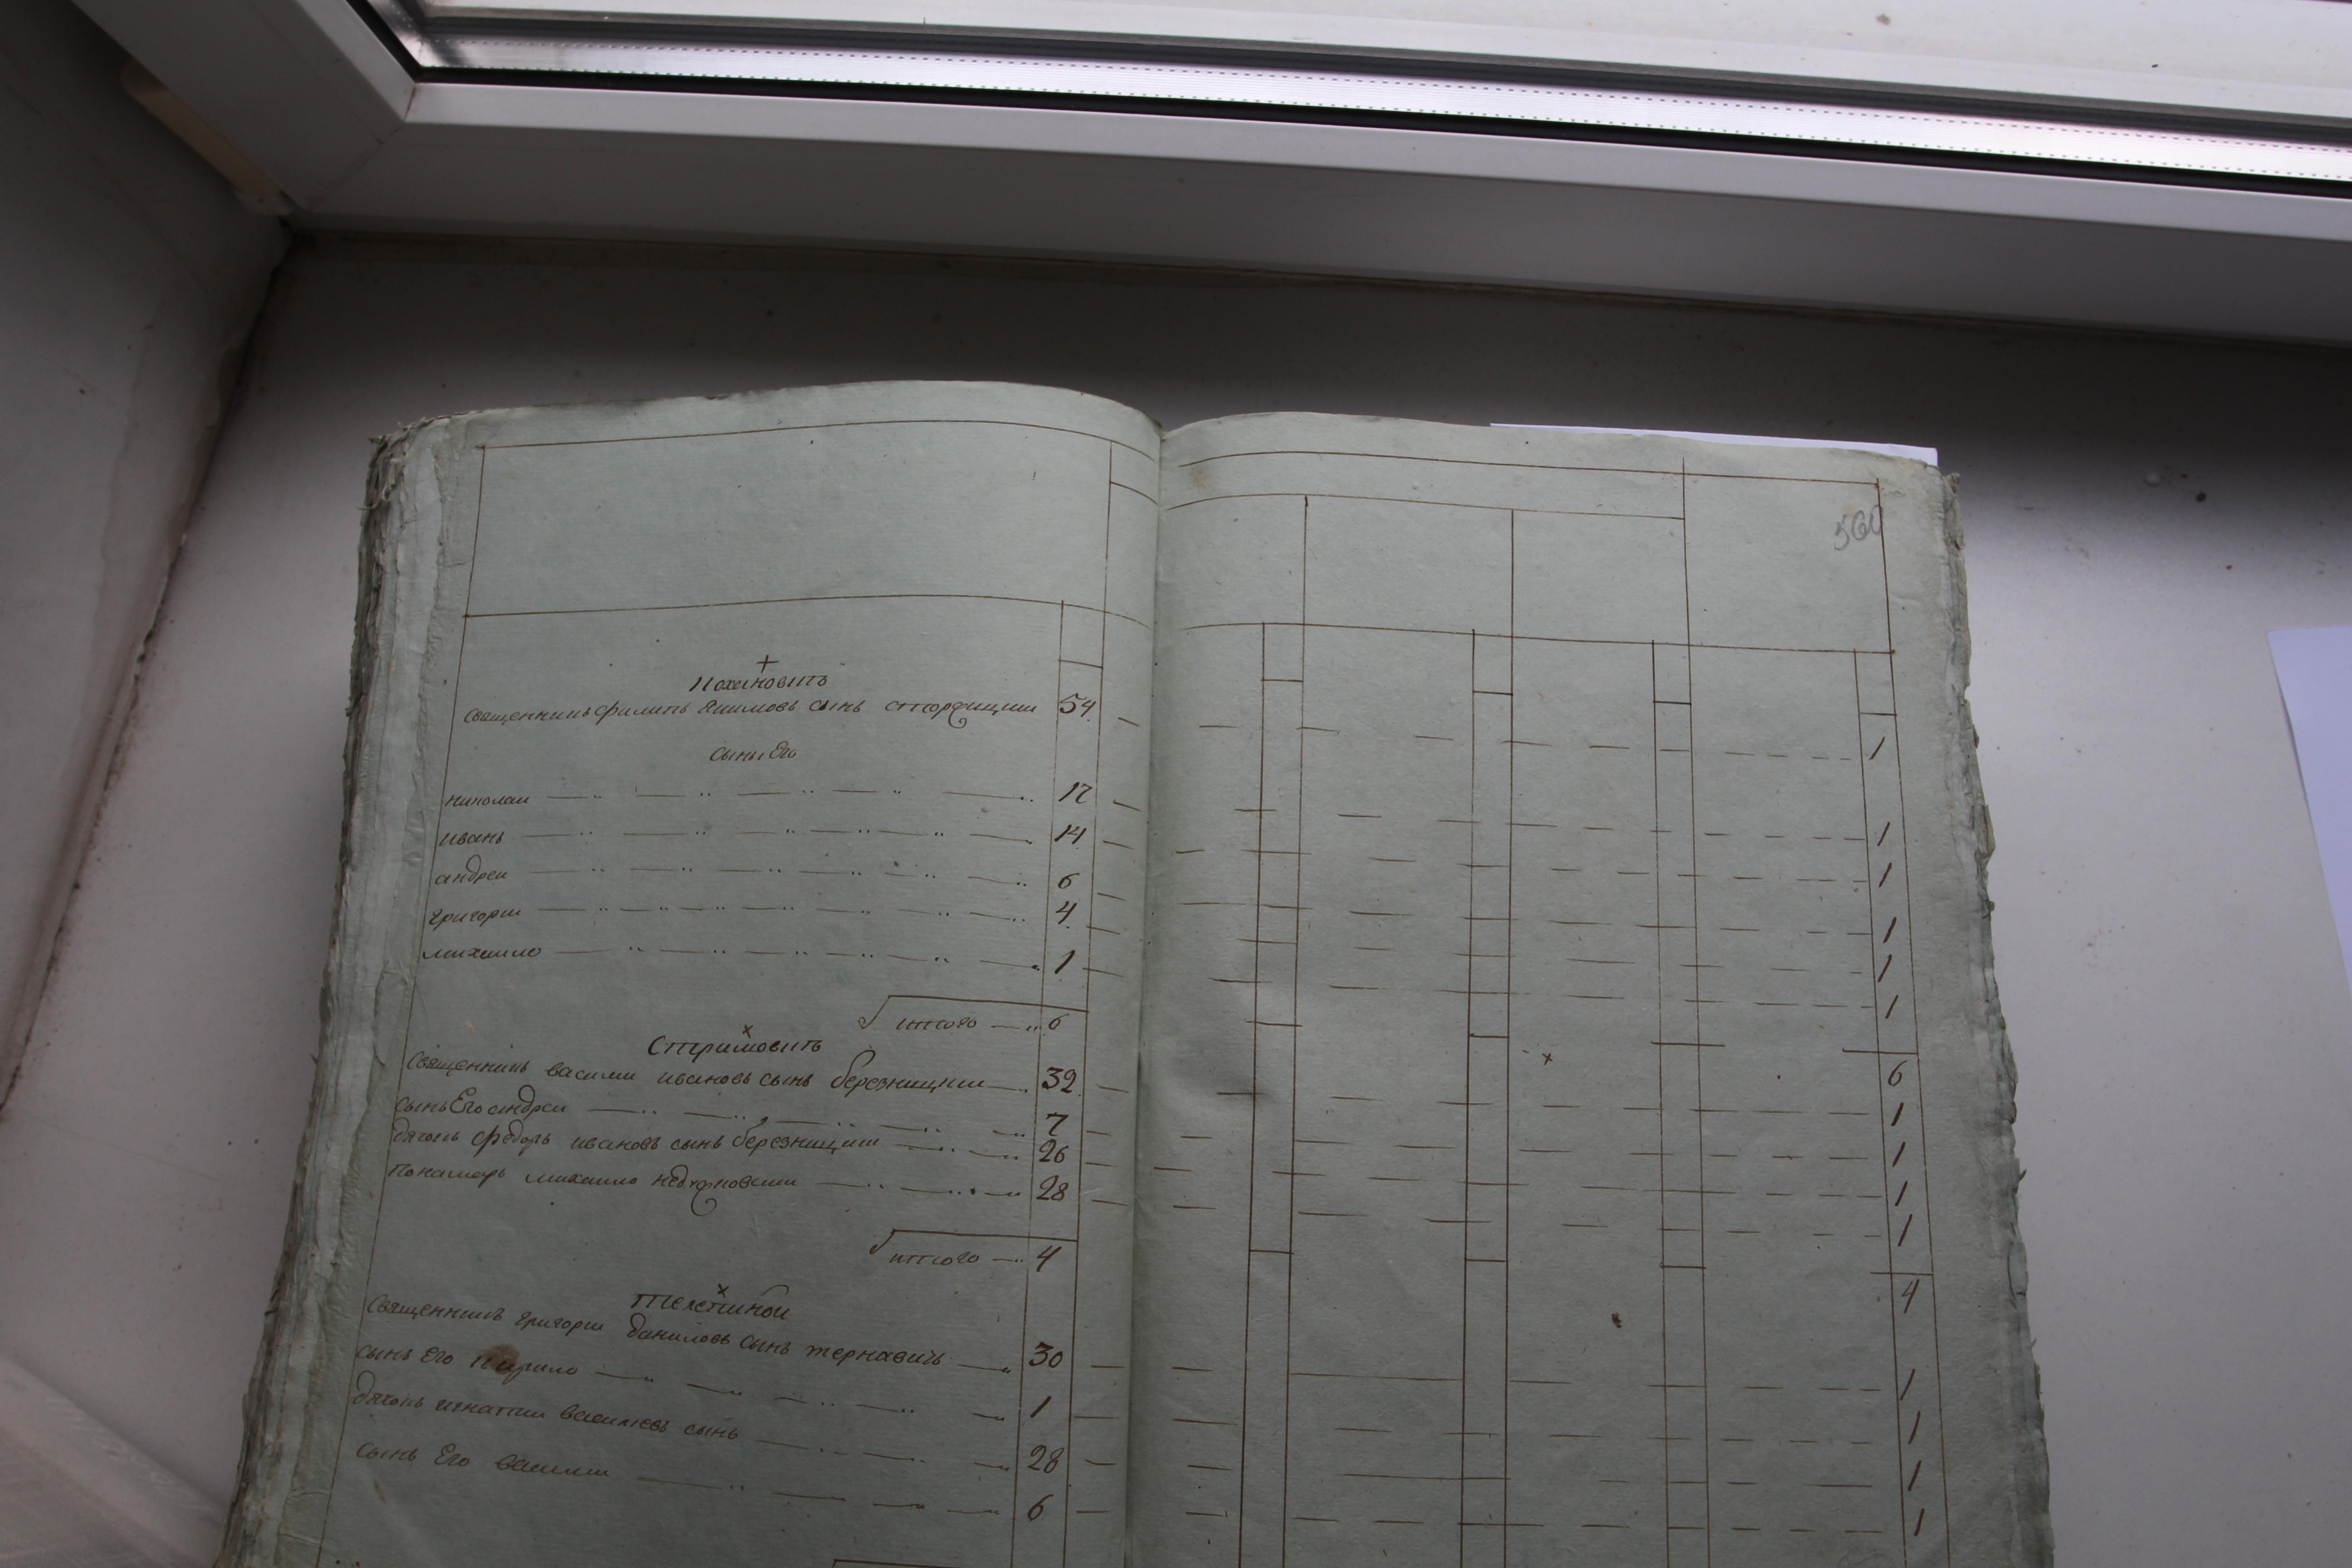 560
+
Похиловить
священникъ филипъ якимовъ сынъ 54 1
сыны Его
николаи 17 1
иванъ 14 1
андреи 6 1
григории 4 1
михаило 1 1
итого 6 6
x
Стримовить x
Священникъ василии ивановъ сынъ березницкии 32 1
сынъ Его андреи 7 1
дячокъ федоръ ивановъ сынъ березницкии 26 1
понамарь михаило 28 1
итого 4 4
x
Священникъ григории даниловъ сынъ тернавичь 30 1
сынъ Его Кирило 1 1
дячокъ игнатии василиевъ сынъ 28 1
сынъ Его василии 6 1